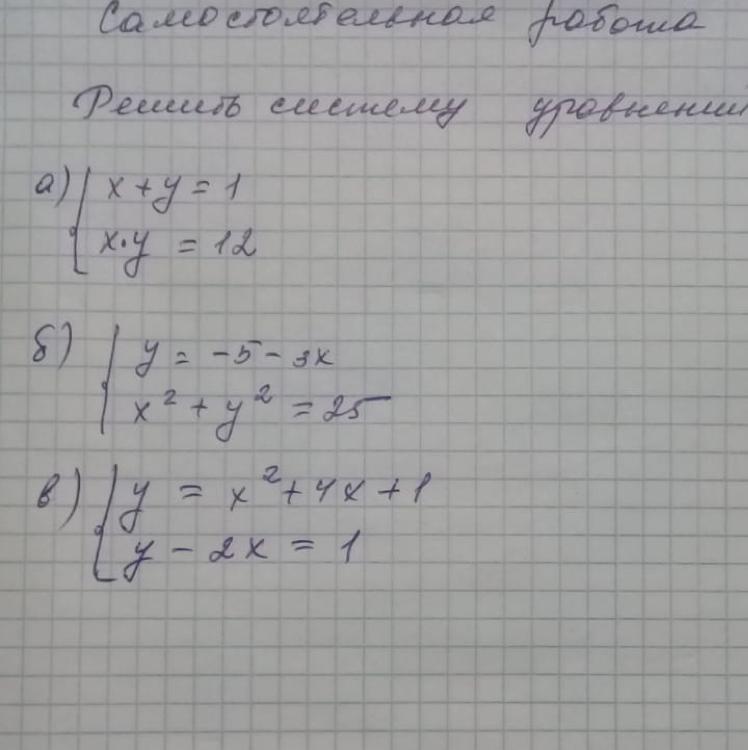 Самостоятельная работа
Решить систему уравнений
а) { x + y = 1
x · y = 12
б) { y = -5 - 3x
x² + y² = 25
в) { y = x² + 4x + 1
y - 2x = 1